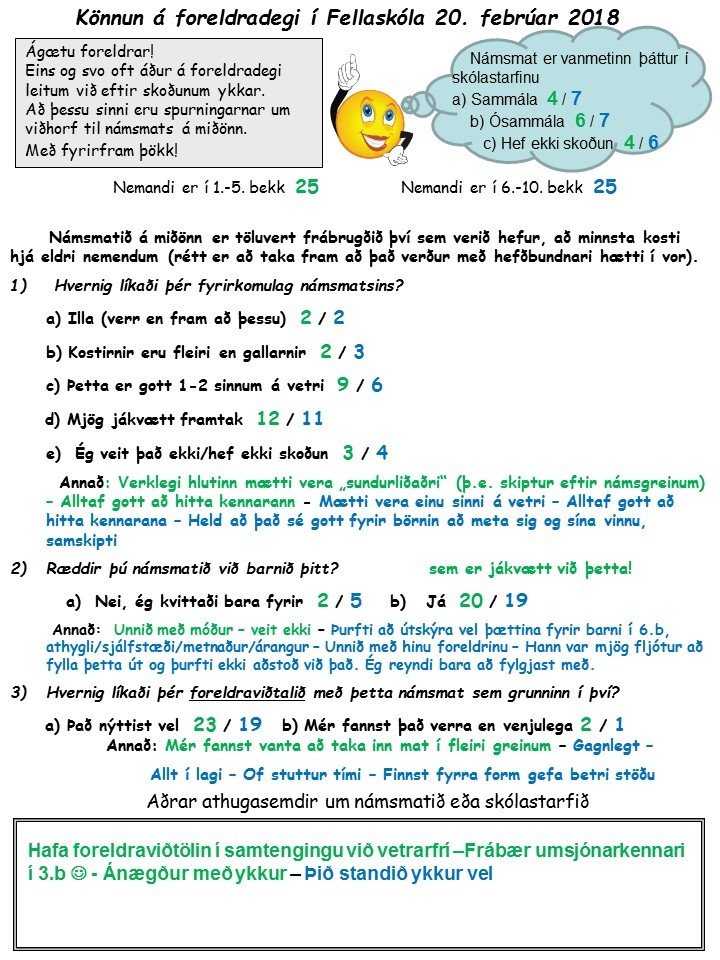 Könnun á foreldradegi í Fellaskóla 20. febrúar 2018
Ágætu foreldrar!
Eins og svo oft áður á foreldradegi
leitum við eftir skoðunum ykkar.
Að þessu sinni eru spurningarnar um
viðhorf til námsmats á miðönn.
Með fyrirfram þökk!
Námsmat er vanmetinn þáttur í
skólastarfinu
a) Sammála 4 / 7
b) Ósammála 6 / 7
c) Hef ekki skoðun 4 / 6
Nemandi er í 1.-5. bekk 25 Nemandi er í 6.-10. bekk 25
Námsmatið á miðönn er töluvert frábrugðið því sem verið hefur, að minnsta kosti
hjá eldri nemendum (rétt er að taka fram að það verður með hefðbundnari hætti í vor).
1) Hvernig líkaði þér fyrirkomulag námsmatsins?
a) Illa (verr en fram að þessu) 2 / 2
b) Kostirnir eru fleiri en gallarnir 2 / 3
c) Þetta er gott 1-2 sinnum á vetri 9 / 6
d) Mjög jákvætt framtak 12 / 11
e) Ég veit það ekki/hef ekki skoðun 3 / 4
Annað: Verklegi hlutinn mætti vera „sundurliðaðri“ (þ.e. skiptur eftir námsgreinum)
– Alltaf gott að hitta kennarann - Mætti vera einu sinni á vetri – Alltaf gott að
hitta kennarana – Held að það sé gott fyrir börnin að meta sig og sína vinnu,
samskipti
2) Ræddir þú námsmatið við barnið þitt? sem er jákvætt við þetta!
a) Nei, ég kvittaði bara fyrir 2 / 5 b) Já 20 / 19
Annað: Unnið með móður – veit ekki – Þurfti að útskýra vel þættina fyrir barni í 6.b,
athygli/sjálfstæði/metnaður/árangur – Unnið með hinu foreldrinu – Hann var mjög fljótur að
fylla þetta út og þurfti ekki aðstoð við það. Ég reyndi bara að fylgjast með.
3) Hvernig líkaði þér foreldraviðtalið með þetta námsmat sem grunninn í því?
a) Það nýttist vel 23 / 19 b) Mér fannst það verra en venjulega 2 / 1
Annað: Mér fannst vanta að taka inn mat í fleiri greinum – Gagnlegt –
Allt í lagi – Of stuttur tími – Finnst fyrra form gefa betri stöðu
Aðrar athugasemdir um námsmatið eða skólastarfið
Hafa foreldraviðtölin í samtengingu við vetrarfrí –Frábær umsjónarkennari
í 3.b ☺ - Ánægður með ykkur – Þið standið ykkur vel